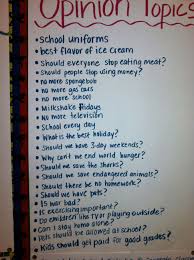 Opinion Topics
• school uniforms
• best flavor of ice cream
• Should everyone stop eating meat?
• Should people stop using money?
• no more spongebob
• no more gas cars
• no more school
• Milkshake Fridays
• No more television
• School every day
• What is the best holiday?
• Should we have 3 day weekends?
• Why can't we end world hunger?
• Should we save the sharks?
• Should we save endangered animals?
• Should there be no homework?
• Should we have pets?
• Is war bad?
• Is exercising important?
• Do children like playing outside?
• Can I stay home alone?
• Pets should be allowed at school?
• Kids should get paid for good grades?